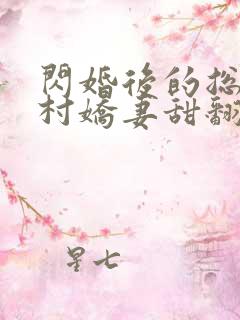 閃婚後的总
村嬌妻甜翻
星七